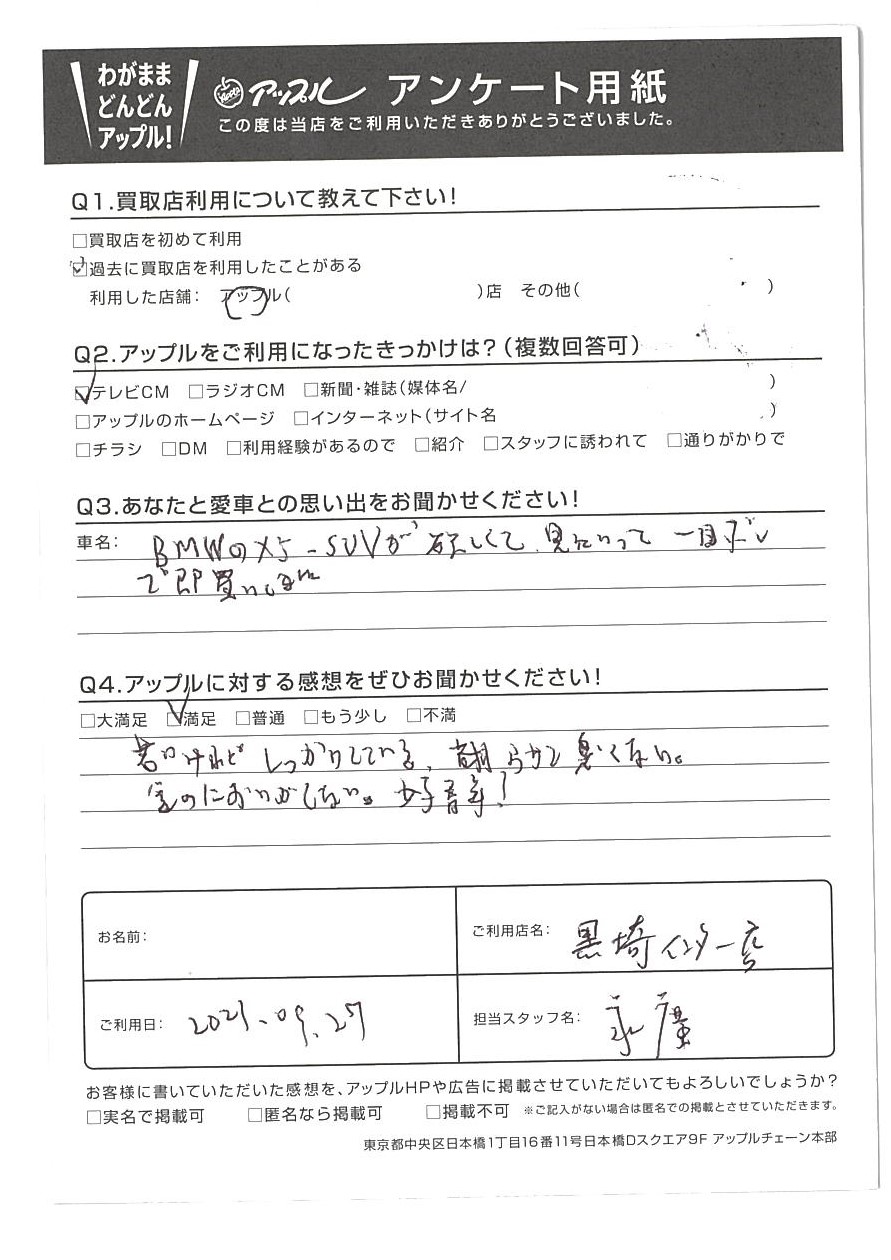 わがまま
どんどん
アップル!
アップル アンケート用紙
この度は当店をご利用いただきありがとうございました。
Q1.買取店利用について教えて下さい!
□買取店を初めて利用
☑過去に買取店を利用したことがある
利用した店舗: アップル( )店 その他( )
Q2.アップルをご利用になったきっかけは?(複数回答可)
☑テレビCM □ラジオCM □新聞・雑誌(媒体名/ )
□アップルのホームページ □インターネット(サイト名 )
□チラシ □DM □利用経験があるので □紹介 □スタッフに誘われて □通りがかりで
Q3.あなたと愛車との思い出をお聞かせください!
車名: BMWのX5-SUVが欲しくて、見にいって一目ボレ
で即買いしました
Q4.アップルに対する感想をぜひお聞かせください!
□大満足 ☑満足 □普通 □もう少し □不満
若いけれどしっかりしている、 悪くない。
のにおいがしない。好青年!
お名前:
ご利用店名: 黒埼インター店
ご利用日: 2021.09.27
担当スタッフ名: 永廣
お客様に書いていただいた感想を、アップルHPや広告に掲載させていただいてもよろしいでしょうか?
□実名で掲載可 □匿名なら掲載可 □掲載不可 ※ご記入がない場合は匿名での掲載とさせていただきます。
東京都中央区日本橋1丁目16番11号日本橋Dスクエア9F アップルチェーン本部